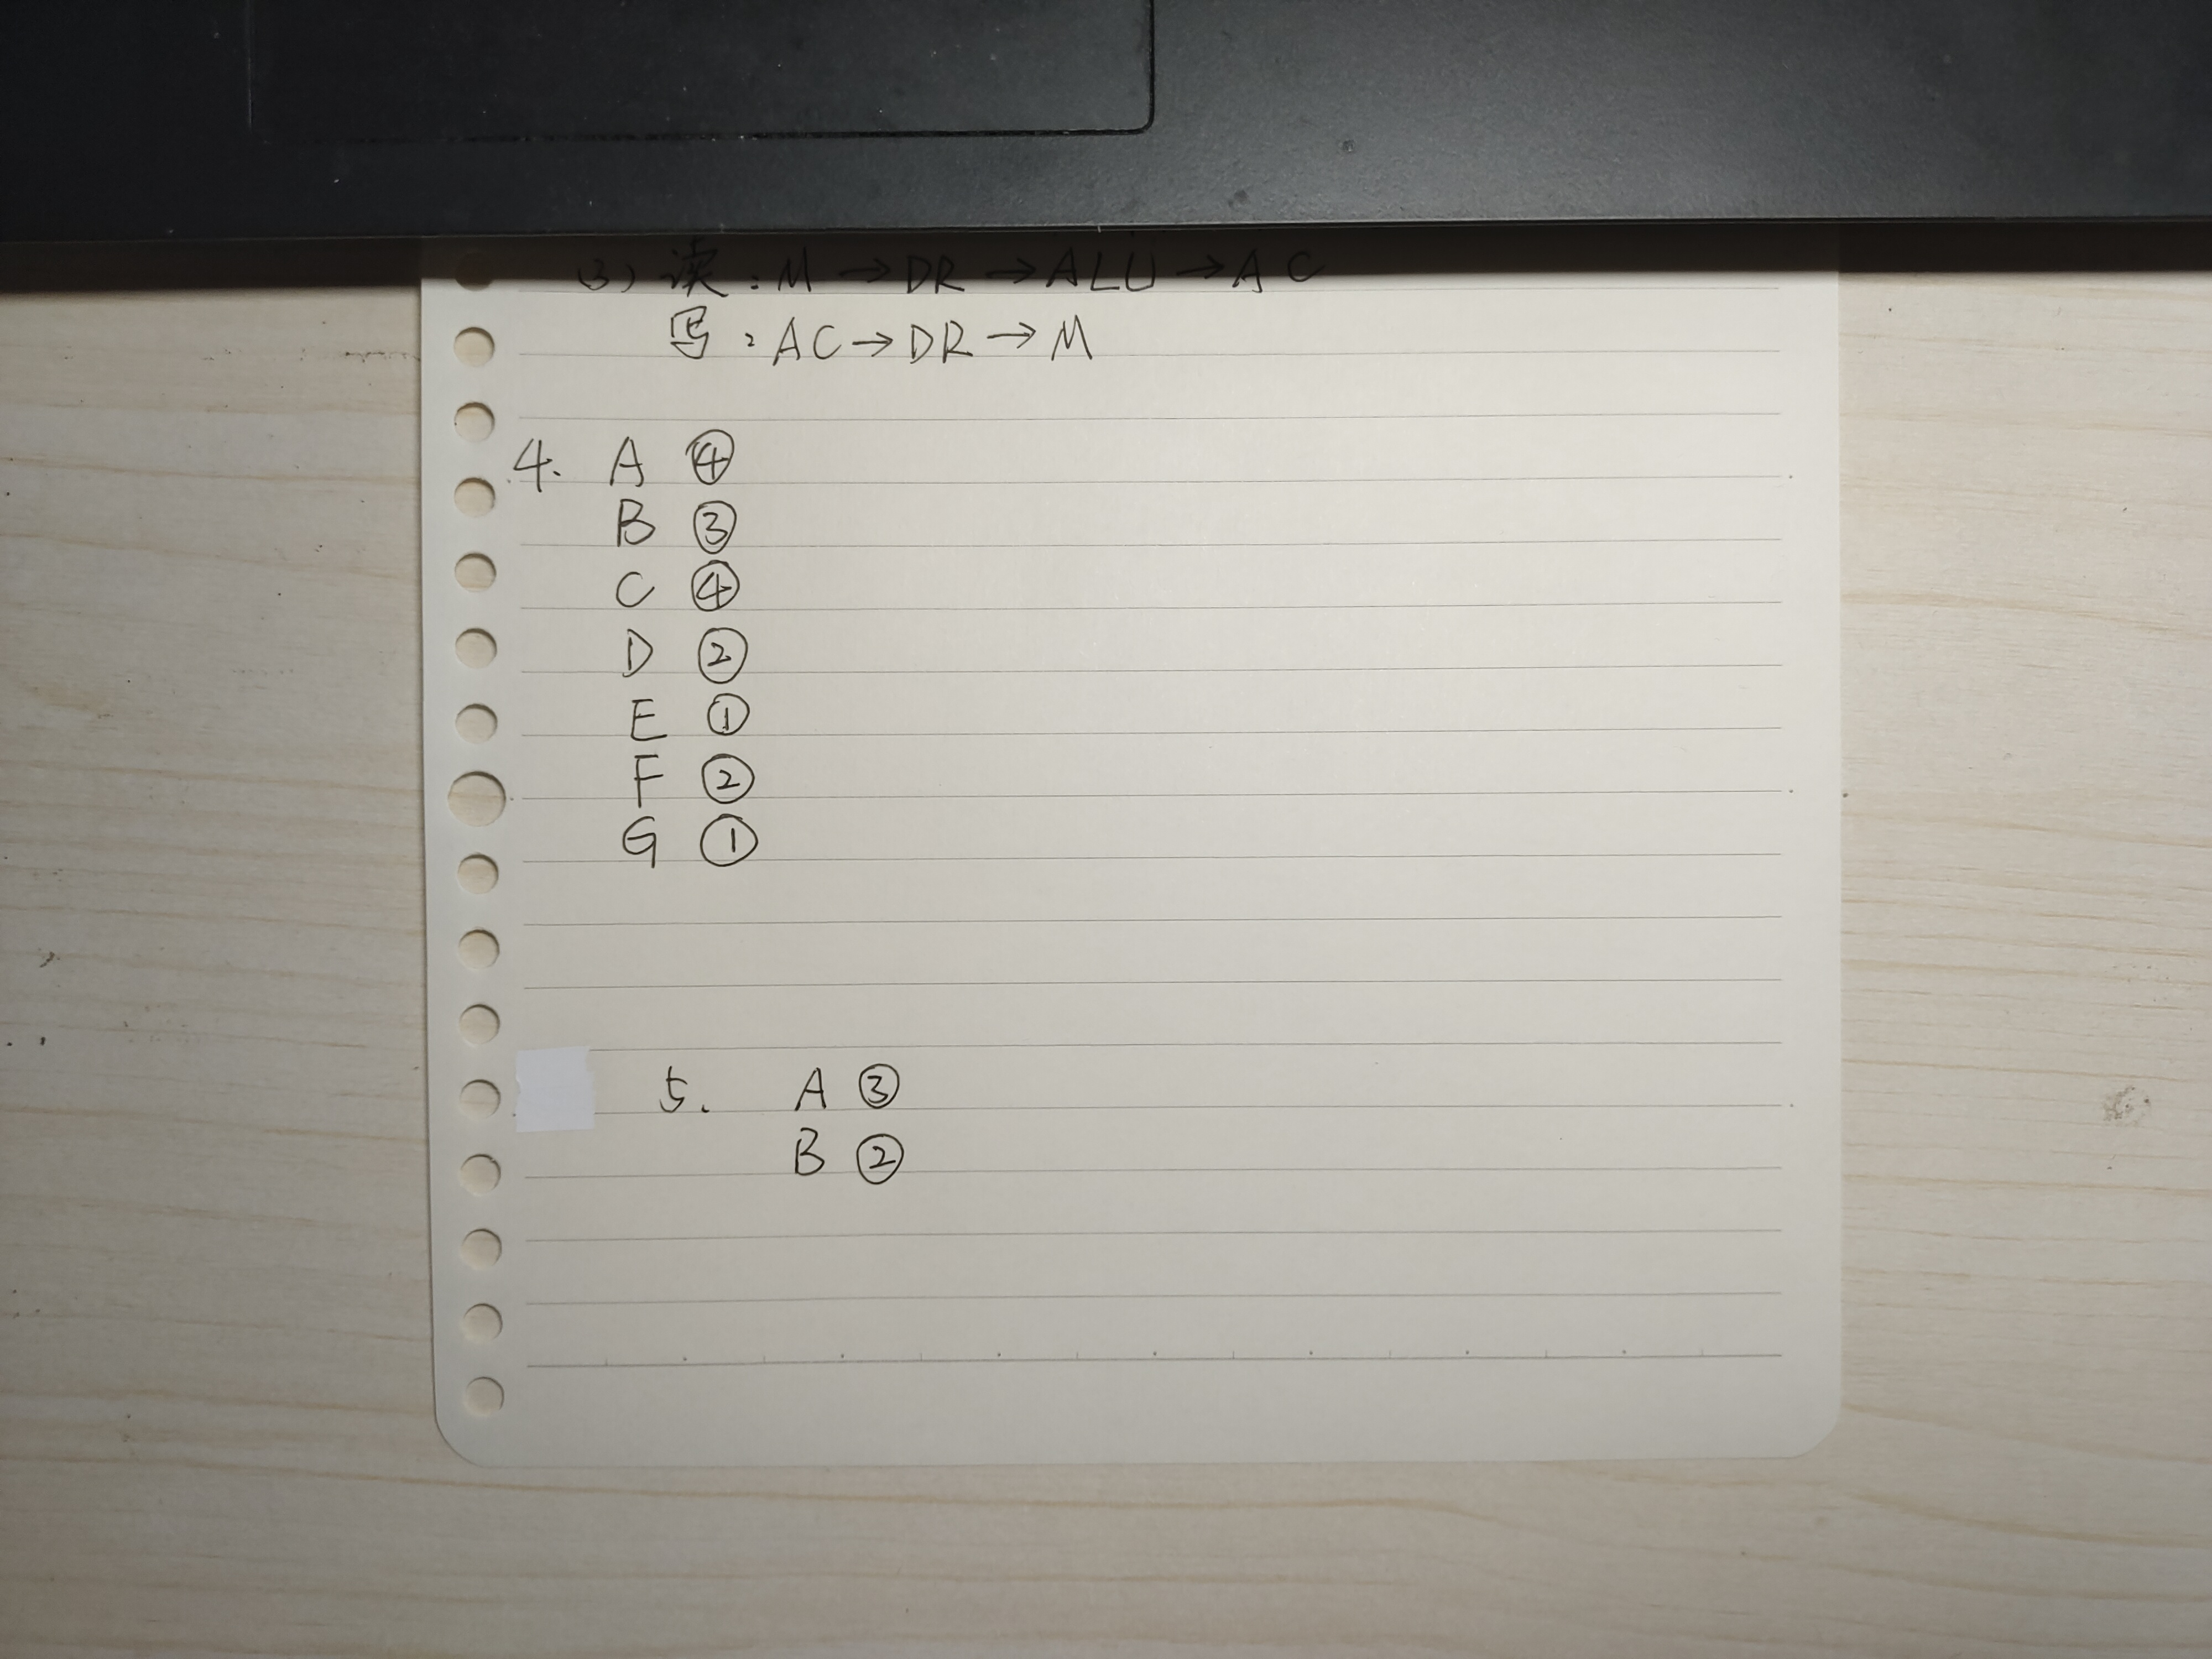 (3) 读：M → DR → ALU → AC
写：AC → DR → M
4. A ④
B ③
C ④
D ②
E ①
F ②
G ①
5. A ③
B ②